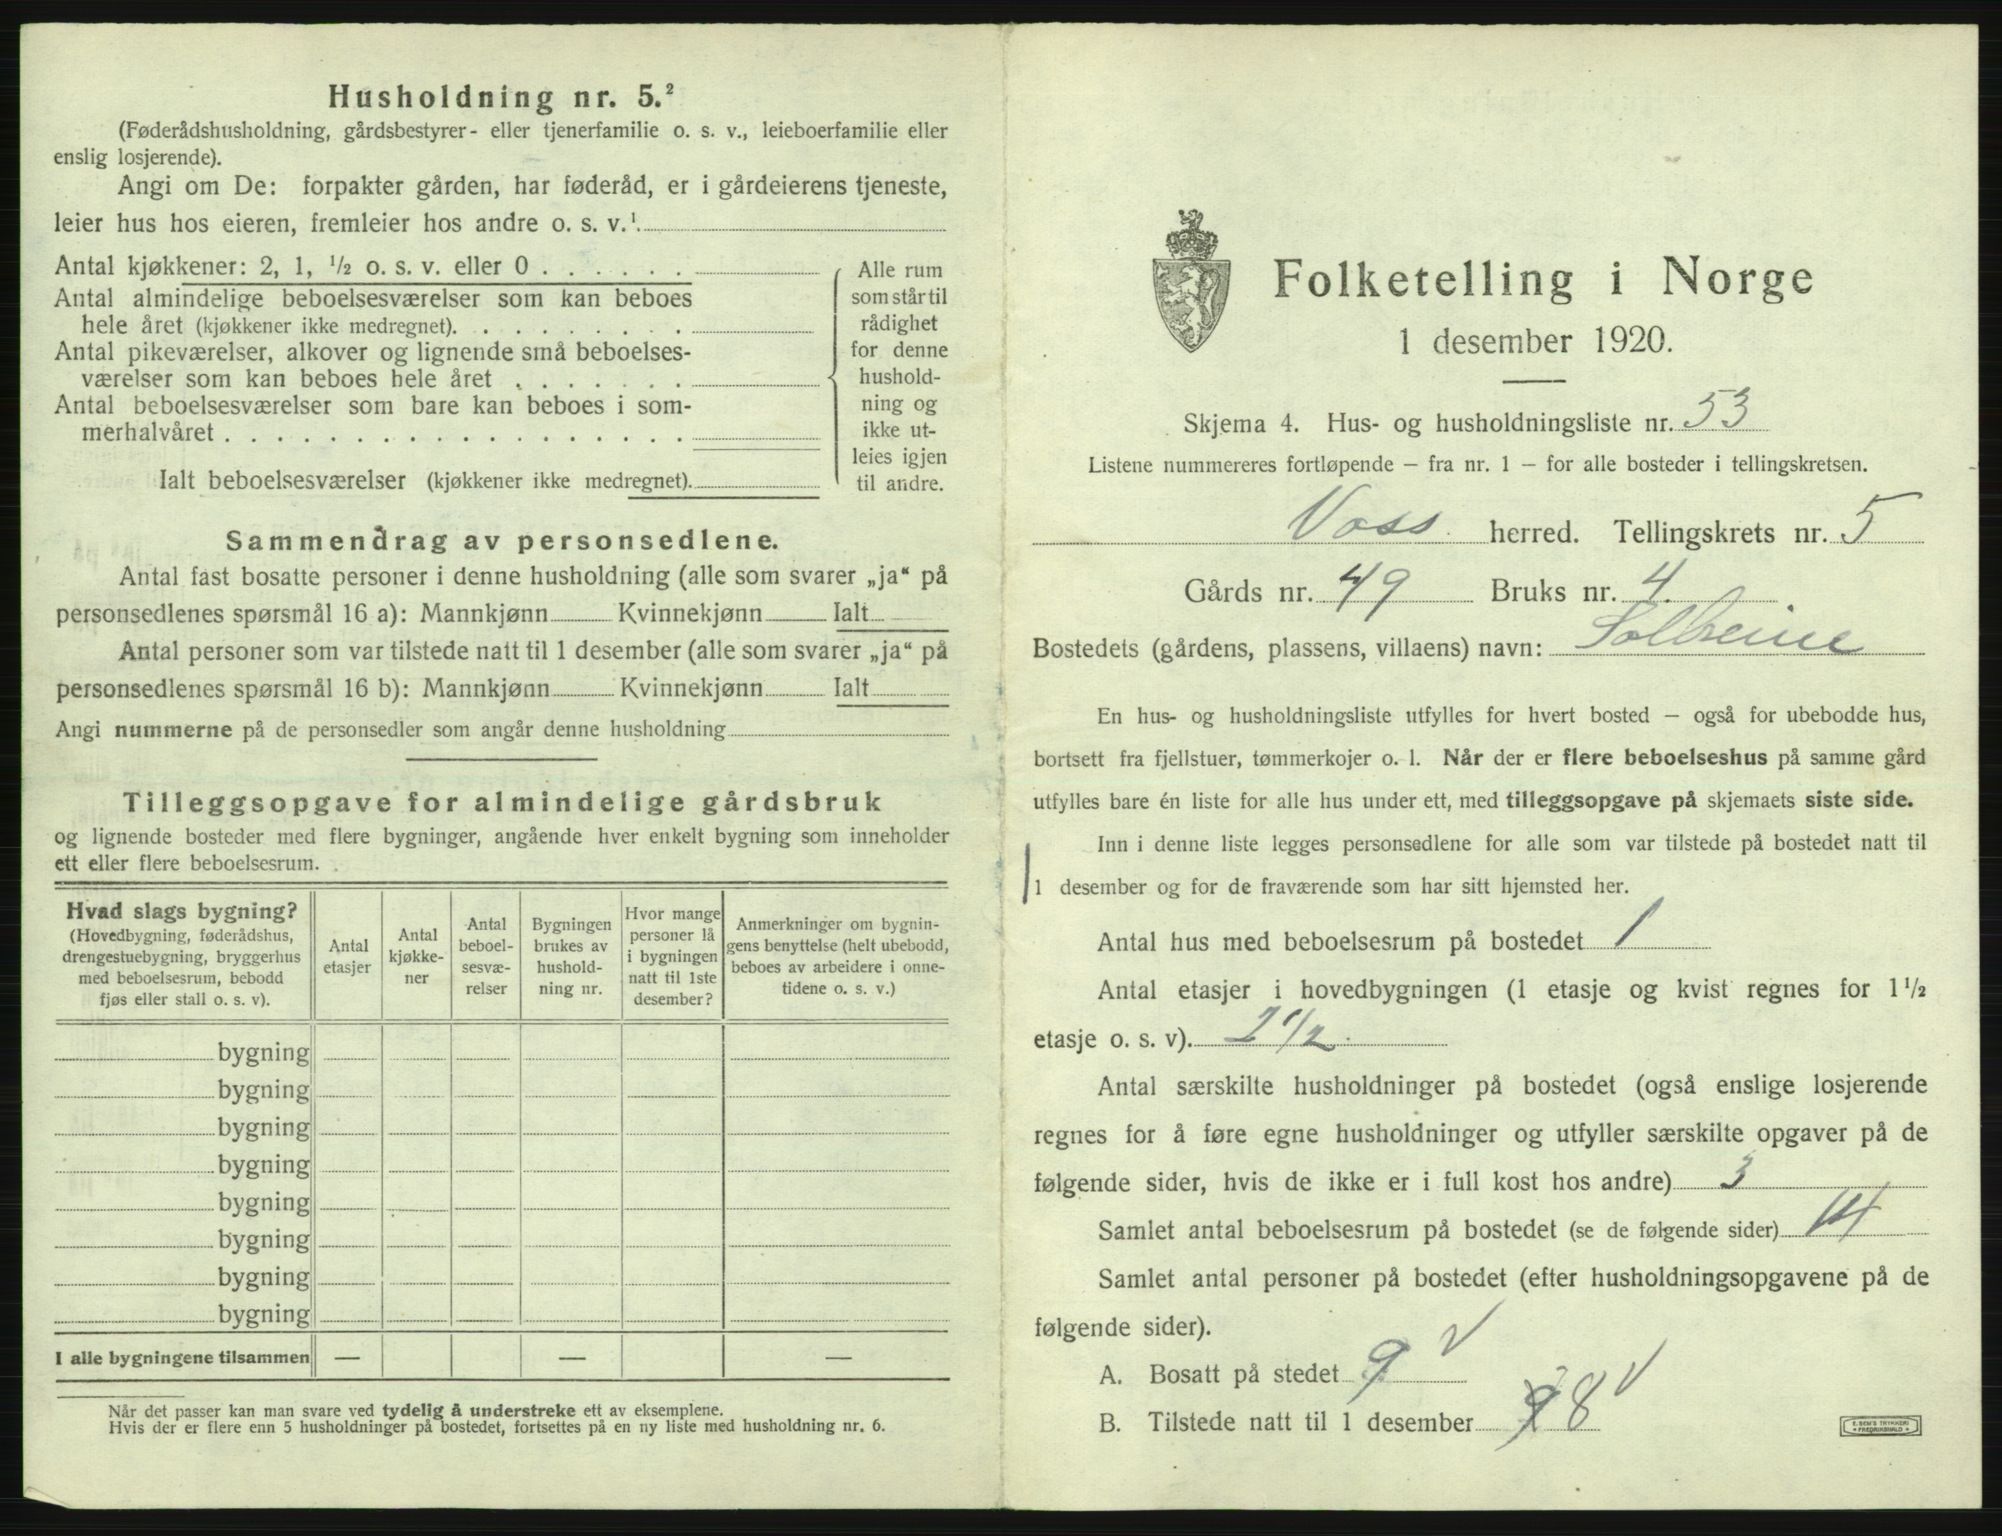 Husholdning nr. 5.²
(Føderådshusholdning, gårdsbestyrer- eller tjenerfamilie o. s. v., leieboerfamilie eller
enslig losjerende).
Angi om De: forpakter gården, har føderåd, er i gårdeierens tjeneste,
leier hus hos eieren, fremleier hos andre o. s. v.¹.
Antal kjøkkener: 2, 1, ½ o. s. v. eller 0 . . . . . .
Antal almindelige beboelsesværelser som kan beboes
hele året (kjøkkener ikke medregnet). . . . . . . . .
Antal pikeværelser, alkover og lignende små beboelses-
værelser som kan beboes hele året . . . . . . .
Antal beboelsesværelser som bare kan beboes i som-
merhalvåret . . . . . . . . . . . . . . . . . .
Ialt beboelsesværelser (kjøkkener ikke medregnet).
Alle rum
som står til
rådighet
for denne
hushold-
ning og
ikke ut-
leies igjen
til andre.
Sammendrag av personsedlene.
Antal fast bosatte personer i denne husholdning (alle som svarer „ja“ på
personsedlenes spørsmål 16 a): Mannkjønn Kvinnekjønn Ialt
Antal personer som var tilstede natt til 1 desember (alle som svarer „ja“ på
personsedlenes spørsmål 16 b): Mannkjønn Kvinnekjønn Ialt
Angi nummerne på de personsedler som angår denne husholdning
Tilleggsopgave for almindelige gårdsbruk
og lignende bosteder med flere bygninger, angående hver enkelt bygning som inneholder
ett eller flere beboelsesrum.
Hvad slags bygning?
(Hovedbygning, føderådshus,
drengestuebygning, bryggerhus
med beboelsesrum, bebodd
fjøs eller stall o. s. v).
Antal
etasjer
Antal
kjøkke-
ner
Antal
beboel-
sesvæ-
relser
Bygningen
brukes av
hushold-
ning nr.
Hvor mange
personer lå
i bygningen
natt til 1ste
desember?
Anmerkninger om bygnin-
gens benyttelse (helt ubebodd,
beboes av arbeidere i onne-
tidene o. s. v.)
bygning
bygning
bygning
bygning
bygning
bygning
bygning
bygning
I alle bygningene tilsammen — — —
Når det passer kan man svare ved tydelig å understreke ett av eksemplene.
Hvis der er flere enn 5 husholdninger på bostedet, fortsettes på en ny liste med husholdning nr. 6.
Folketelling i Norge
1 desember 1920.
Skjema 4. Hus- og husholdningsliste nr. 53
Listene nummereres fortløpende – fra nr. 1 – for alle bosteder i tellingskretsen.
Voss herred. Tellingskrets nr. 5
Gårds nr. 49 Bruks nr. 4.
Bostedets (gårdens, plassens, villaens) navn: Solheim
En hus- og husholdningsliste utfylles for hvert bosted – også for ubebodde hus,
bortsett fra fjellstuer, tømmerkojer o. l. Når der er flere beboelseshus på samme gård
utfylles bare én liste for alle hus under ett, med tilleggsopgave på skjemaets siste side.
Inn i denne liste legges personsedlene for alle som var tilstede på bostedet natt til
1 desember og for de fraværende som har sitt hjemsted her.
Antal hus med beboelsesrum på bostedet 1
Antal etasjer i hovedbygningen (1 etasje og kvist regnes for 1½
etasje o. s. v). 2 1/2
Antal særskilte husholdninger på bostedet (også enslige losjerende
regnes for å føre egne husholdninger og utfyller særskilte opgaver på de
følgende sider, hvis de ikke er i full kost hos andre) 3
Samlet antal beboelsesrum på bostedet (se de følgende sider) 14
Samlet antal personer på bostedet (efter husholdningsopgavene på de
følgende sider).
A. Bosatt på stedet 9 V
B. Tilstede natt til 1 desember 9 8 V
E. SEM'S TRYKKERI
FREDRIKSHALD